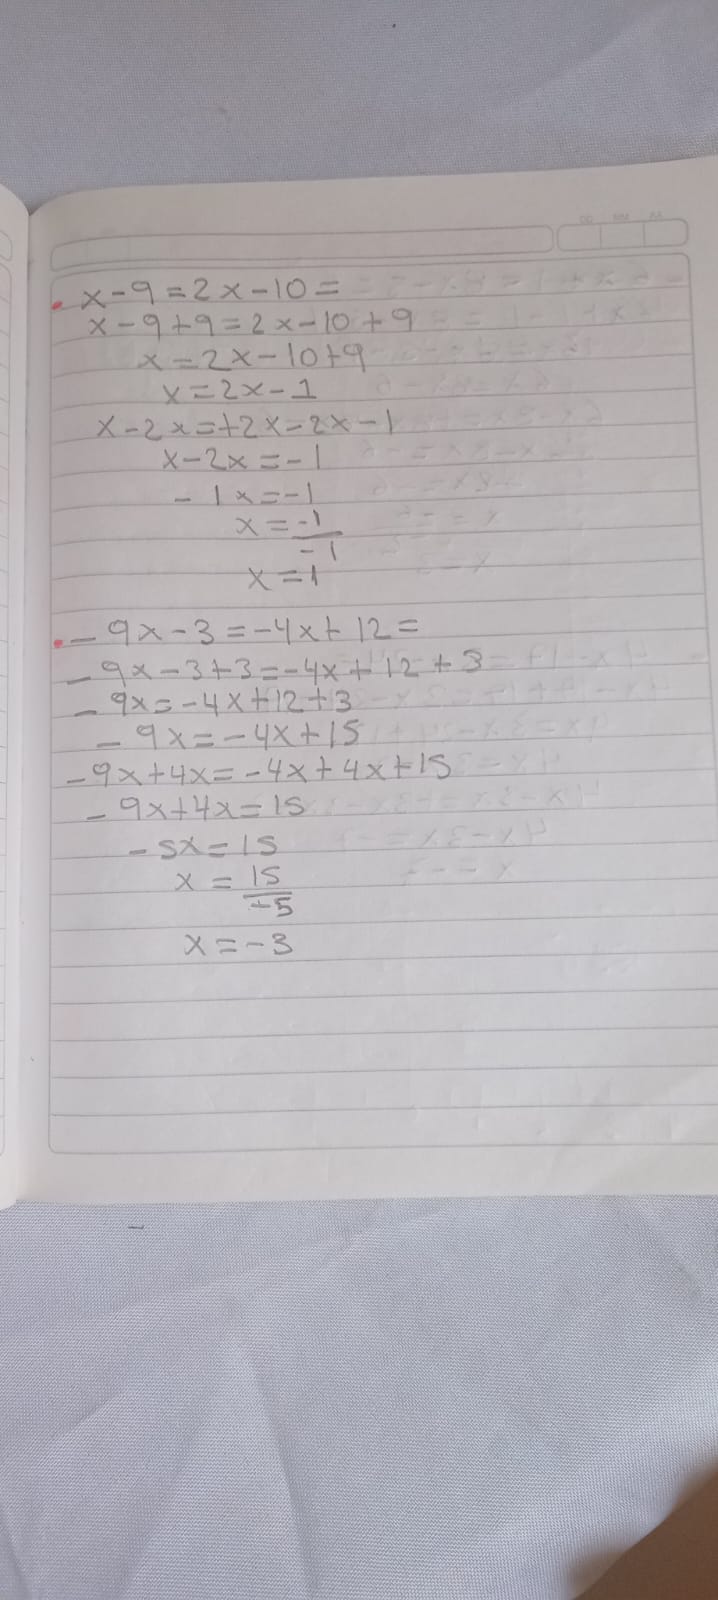 x-9=2x-10=
x-9+9=2x-10+9
x=2x-10+9
x=2x-1
x-2x=+2x=2x-1
x-2x=-1
-1x=-1
x=-1
-1
x=1
-9x-3=-4x+12=
-9x-3+3=-4x+12+3
-9x=-4x+12+3
-9x=-4x+15
-9x+4x=-4x+4x+15
-9x+4x=15
-5x=15
x=15
-5
x=-3